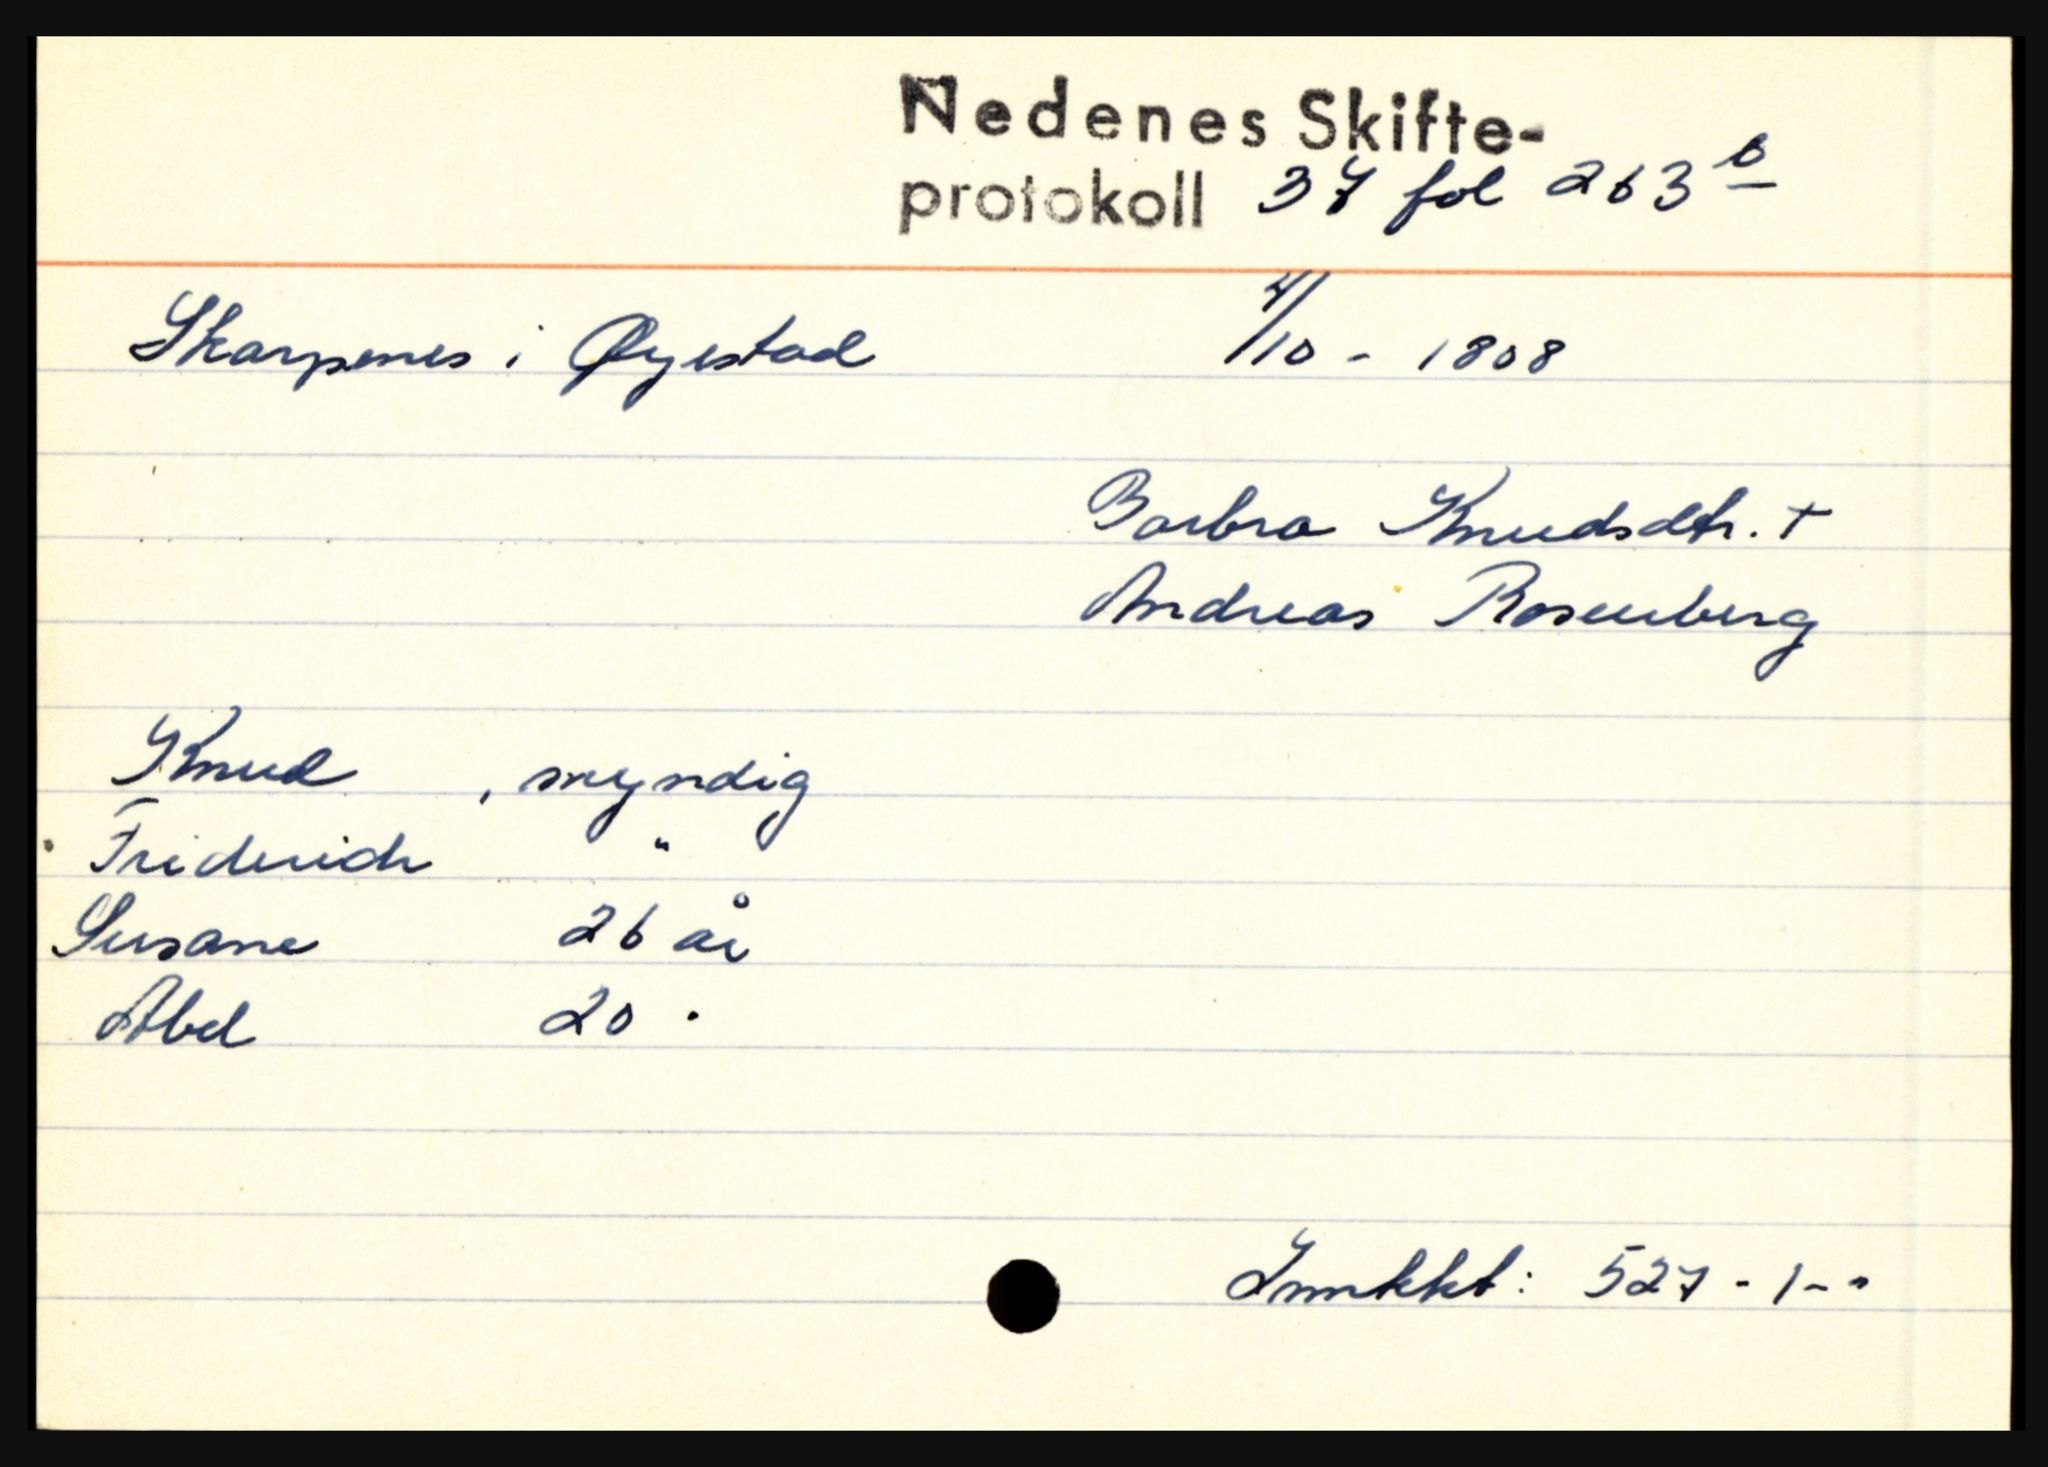 Nedenes Skifte-
protokoll 37 fol 263 b
Skarpenes i Øyestad 4/10 - 1808
Barbra Knudsdtr. +
Andreas Rosenberg
Knud , myndig
Friderich "
Susane 26 år
Abel 20 .
527 - 1 - "